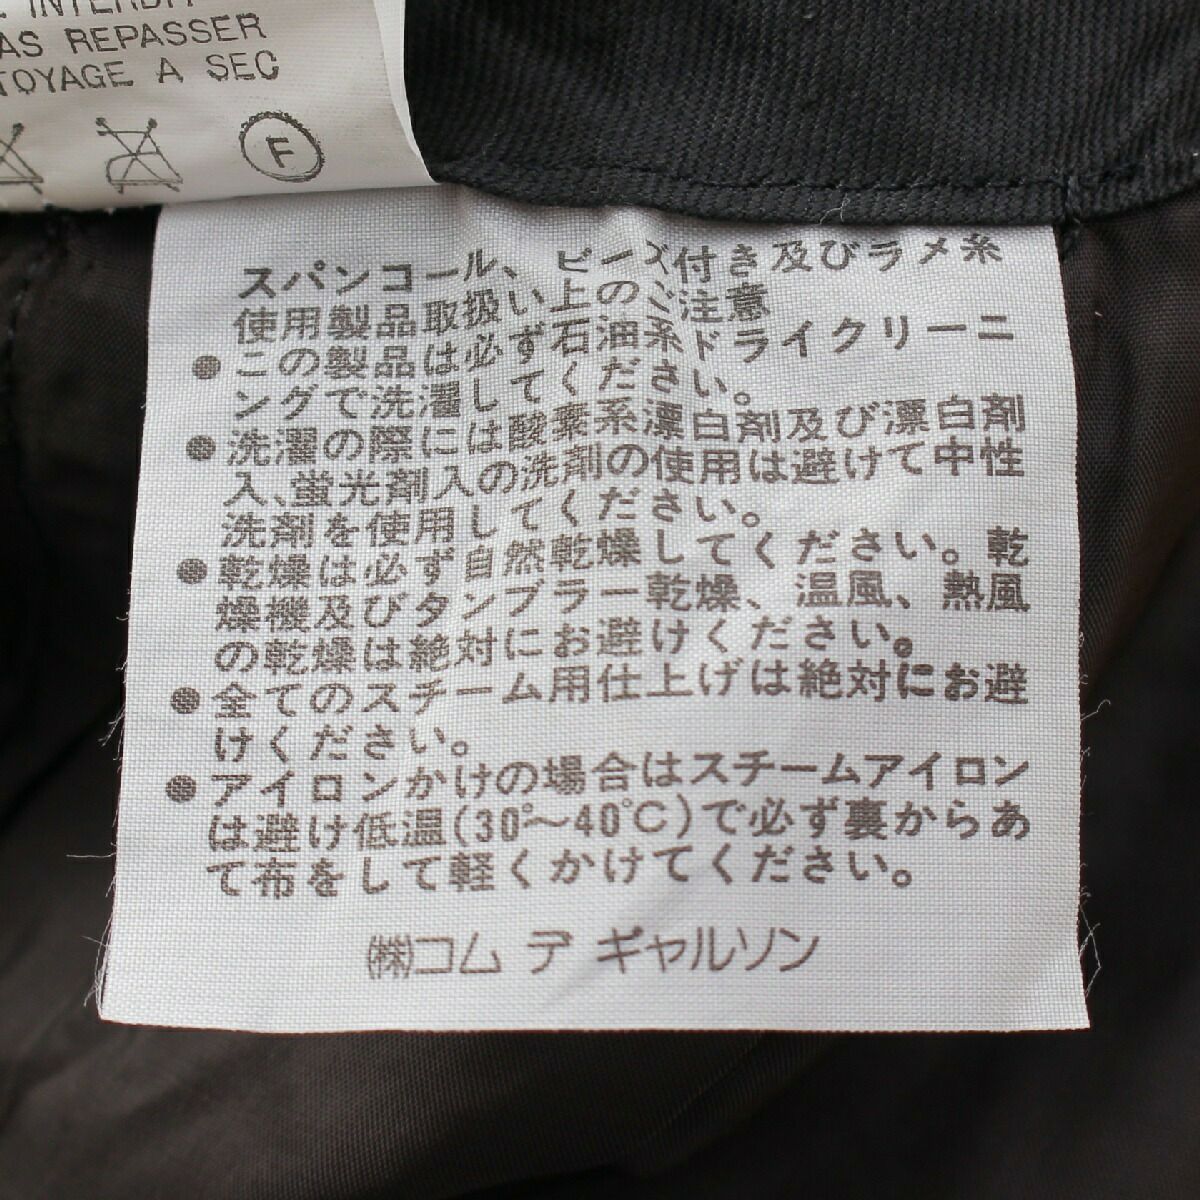 INTERDIT
AS REPASSER
TOYAGE A SEC
F
スパンコール、ビーズ付き及びラメ糸
使用製品取扱い上のご注意
●この製品は必ず石油系ドライクリーニ
ングで洗濯してください。
●洗濯の際には酸素系漂白剤及び漂白剤
入、蛍光剤入の洗剤の使用は避けて中性
洗剤を使用してください。
●乾燥は必ず自然乾燥してください。乾
燥機及びタンブラー乾燥、温風、熱風
の乾燥は絶対にお避けください。
●全てのスチーム用仕上げは絶対にお避
けください。
●アイロンかけの場合はスチームアイロン
は避け低温(30°～40℃)で必ず裏からあ
て布をして軽くかけてください。
㈱コム デ ギャルソン